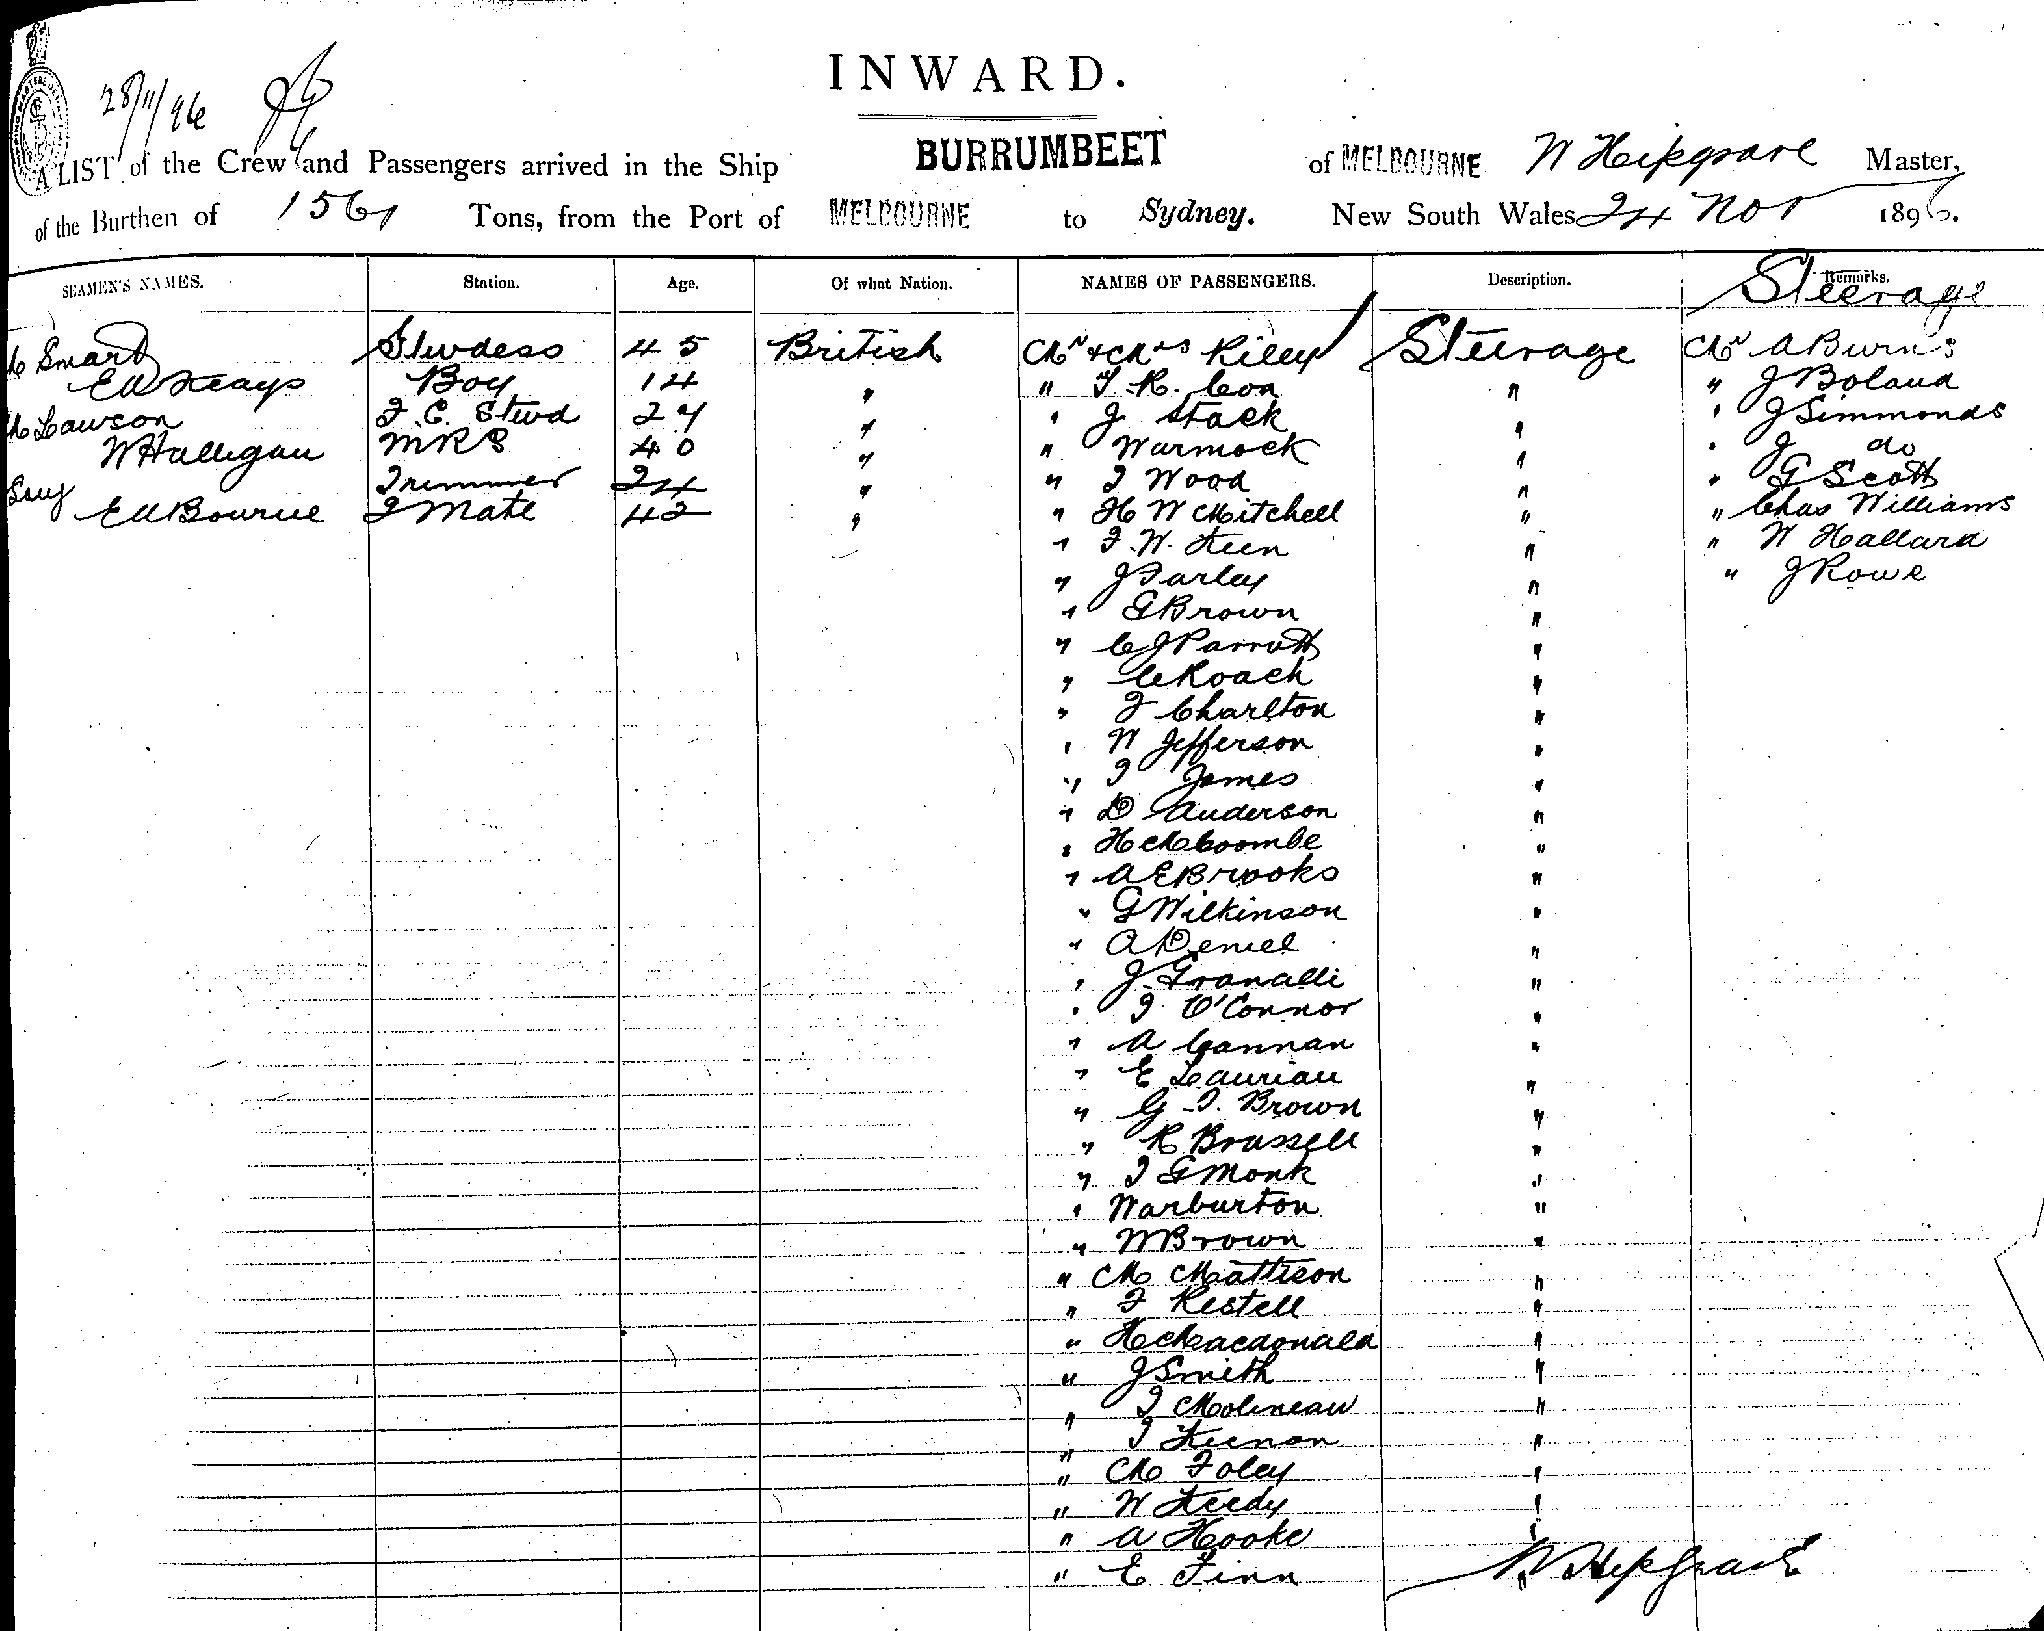 INWARD.
28/11/96
A LIST of the Crew and Passengers arrived in the Ship BURRUMBEET of MELBOURNE W Hipgrave Master,
of the Burthen of 1561 Tons, from the Port of MELBOURNE to Sydney. New South Wales 24 Nov 1896.
SEAMEN'S NAMES. Station. Age. Of what Nation. NAMES OF PASSENGERS. Description. Remarks. Steerage
Smart Stewdess 45 British Mr & Mrs Riley Steerage Mr A Burns
Ed Keays Boy 14 " " T. R. Cox " " J Boland
M Lawson F. C. Stwd 27 " " J Stack " " J Simmonds
W Halligan MRS 40 " " Warmock " " J do
Trimmer 24 " " T Wood " " G Scott
Ed Bourne 2 Mate 42 " " H W Mitchell " " Chas Williams
" F. W. Keen " " W Hallard
" J Farley " " J Rowe
" G Brown "
" C J Parrott "
" C Roach "
" F Charlton "
" W Jefferson "
" T James "
" D Anderson "
" H McCoombe "
" A E Brooks "
" G Wilkinson "
" A Deniel "
" J Granalli "
" T O'Connor "
" A Cannan "
" E Lauriau "
" G T. Brown "
" R Brassell "
" T G Monk "
" Warburton "
" W Brown "
" M Mattison "
" F Restell "
" H Macdonald "
" J Smith "
" T Molineau "
" T Keenan "
" M Foley "
" W Keedy "
" A Hooke "
" E Finn "
W Hipgrave